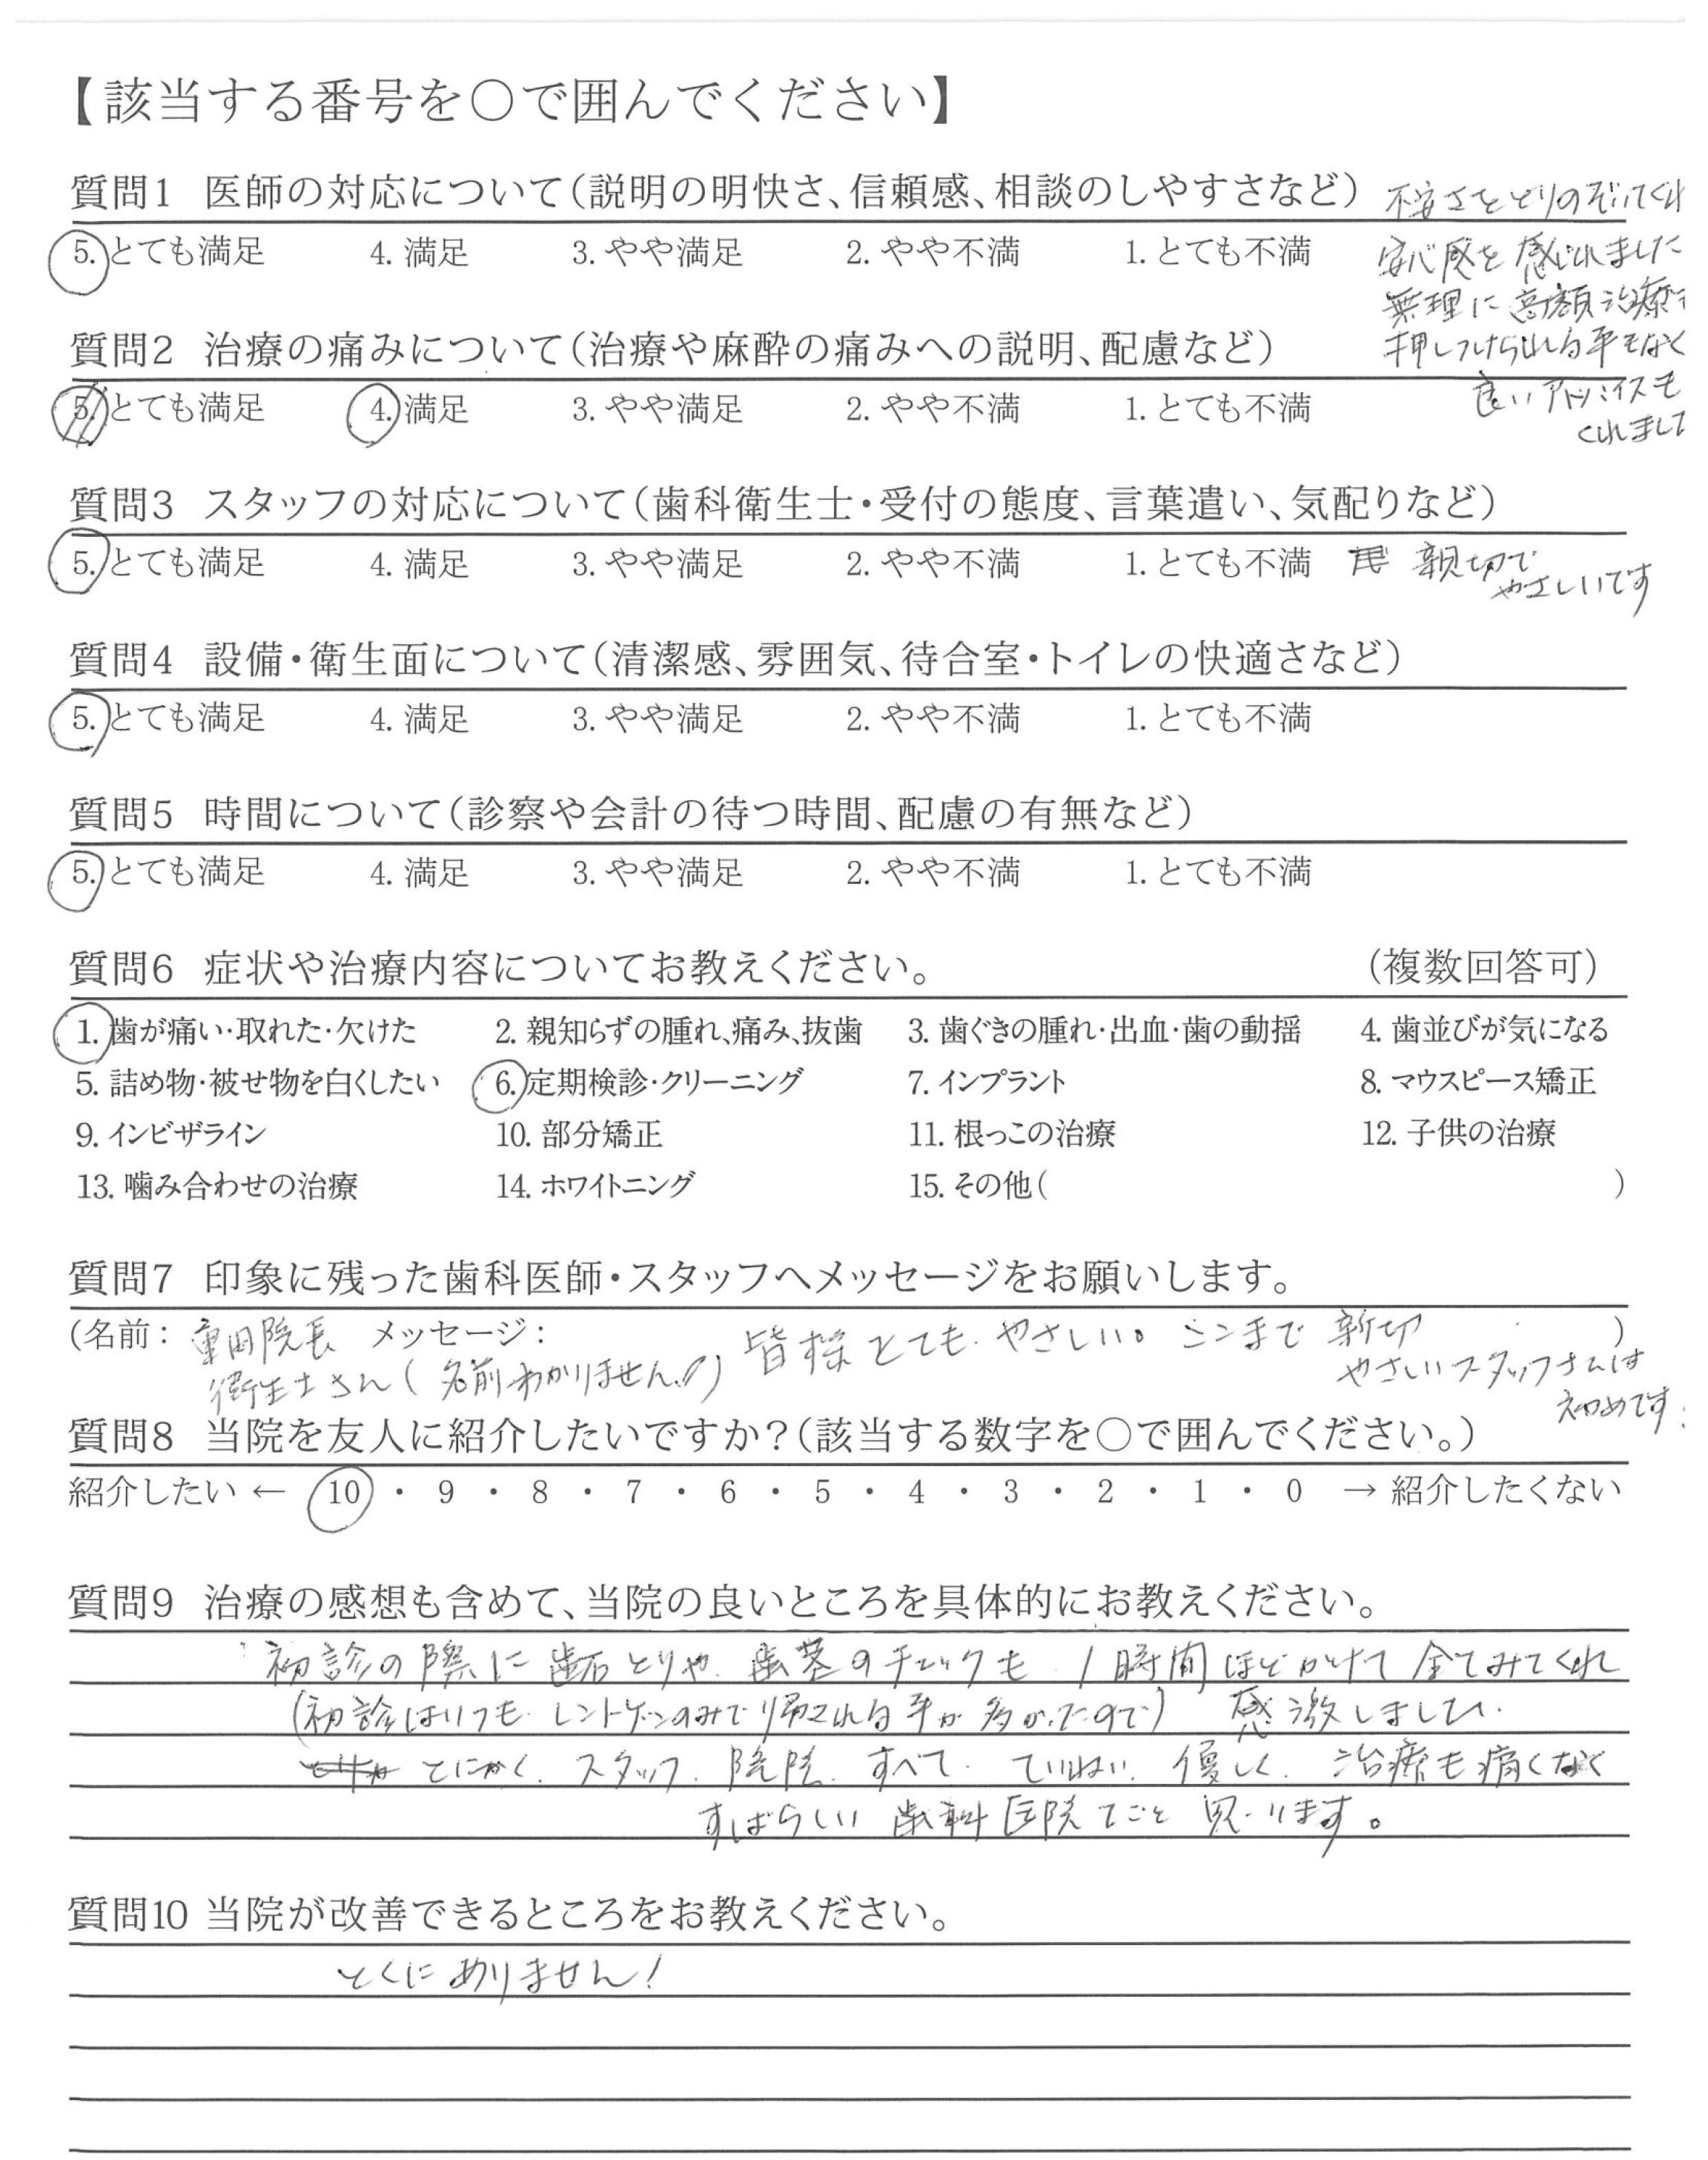 【該当する番号を○で囲んでください】
質問1 医師の対応について(説明の明快さ、信頼感、相談のしやすさなど)
不安さをとりのぞいてくれ
5. とても満足 4. 満足 3. やや満足 2. やや不満 1. とても不満
安心感を感じれました
無理に高額治療
押しつけられる事もなく
良いアドバイスも
くれまして
質問2 治療の痛みについて(治療や麻酔の痛みへの説明、配慮など)
5. とても満足 4. 満足 3. やや満足 2. やや不満 1. とても不満
質問3 スタッフの対応について(歯科衛生士・受付の態度、言葉遣い、気配りなど)
5. とても満足 4. 満足 3. やや満足 2. やや不満 1. とても不満 親切で
やさしいです
質問4 設備・衛生面について(清潔感、雰囲気、待合室・トイレの快適さなど)
5. とても満足 4. 満足 3. やや満足 2. やや不満 1. とても不満
質問5 時間について(診察や会計の待つ時間、配慮の有無など)
5. とても満足 4. 満足 3. やや満足 2. やや不満 1. とても不満
質問6 症状や治療内容についてお教えください。 (複数回答可)
1. 歯が痛い・取れた・欠けた 2. 親知らずの腫れ、痛み、抜歯 3. 歯ぐきの腫れ・出血・歯の動揺 4. 歯並びが気になる
5. 詰め物・被せ物を白くしたい 6. 定期検診・クリーニング 7. インプラント 8. マウスピース矯正
9. インビザライン 10. 部分矯正 11. 根っこの治療 12. 子供の治療
13. 噛み合わせの治療 14. ホワイトニング 15. その他( )
質問7 印象に残った歯科医師・スタッフへメッセージをお願いします。
(名前: 院長 メッセージ: 皆様とても やさしい。ここまで 新切 )
衛生士さん(名前わかりません) やさしいスタッフさんは
初めてです
質問8 当院を友人に紹介したいですか?(該当する数字を○で囲んでください。)
紹介したい ← 10 ・ 9 ・ 8 ・ 7 ・ 6 ・ 5 ・ 4 ・ 3 ・ 2 ・ 1 ・ 0 → 紹介したくない
質問9 治療の感想も含めて、当院の良いところを具体的にお教えください。
初診の際に 歯石とりや 歯茎のチェックも 1時間ほどかけて 全てみてくれ
(初診はいつも レントゲンのみで帰される事が多かったので) 感激しました。
とにかく、スタッフ、すべて ていねい 優しく 治療も痛くなく
すばらしい 歯科医院 思います。
質問10 当院が改善できるところをお教えください。
とくに ありません!